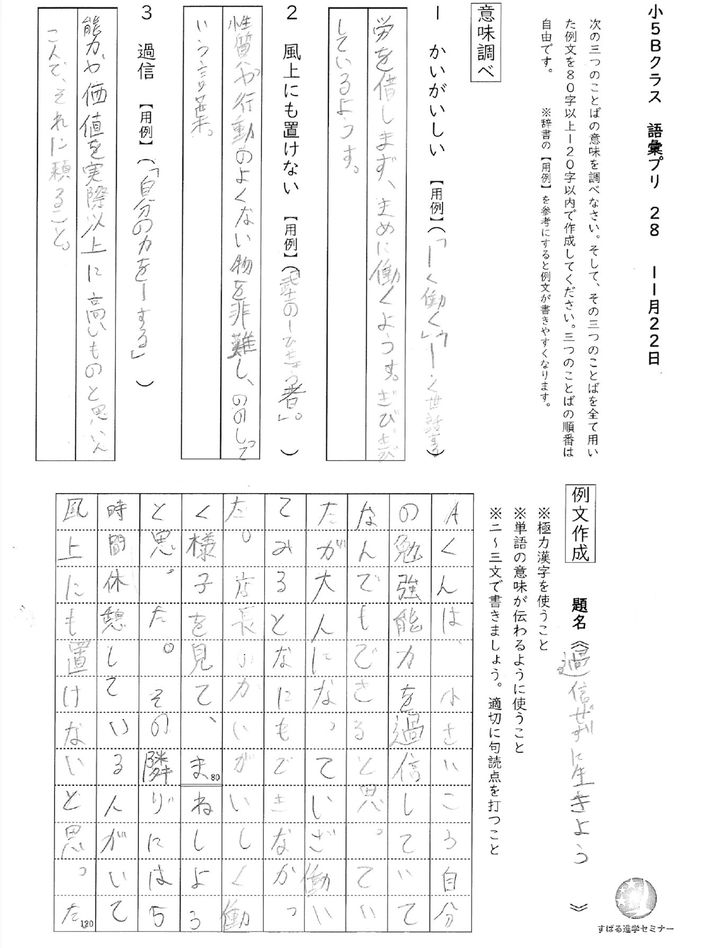 小5Bクラス 語彙プリ 28 11月22日
次の三つのことばの意味を調べなさい。そして、その三つのことばを全て用い
た例文を80字以上120字以内で作成してください。三つのことばの順番は
自由です。 ※辞書の【用例】を参考にすると例文が書きやすくなります。
意味調べ
1 かいがいしい 【用例】(「ーく働く」「ーく世話
労を惜しまず、まめに働くようす。きびきび
しているようす。
2 風上にも置けない 【用例】(武士のー
者」。)
性質や行動のよくない物を非難し、ののしって
いう言葉。
3 過信 【用例】(「自分の力をーする」)
能力や価値を実際以上に高いものと思いこ
こんで、それに頼ること。
例文作成 題名《過信せずに生きよう》
※極力漢字を使うこと
※単語の意味が伝わるように使うこと
※二～三文で書きましょう。適切に句読点を打つこと
Aくんは、小さいころ自分
の勉強能力を過信していて
なんでもできると思っていい
たが大人になっていざ働い
てみるとなにもできなかっ
た。店長がかいがいしく働
く様子を見て、まねしよう
80
と思った。その隣りには5
時間休憩している人がいて
風上にも置けないと思った
120
すばる進学セミナー